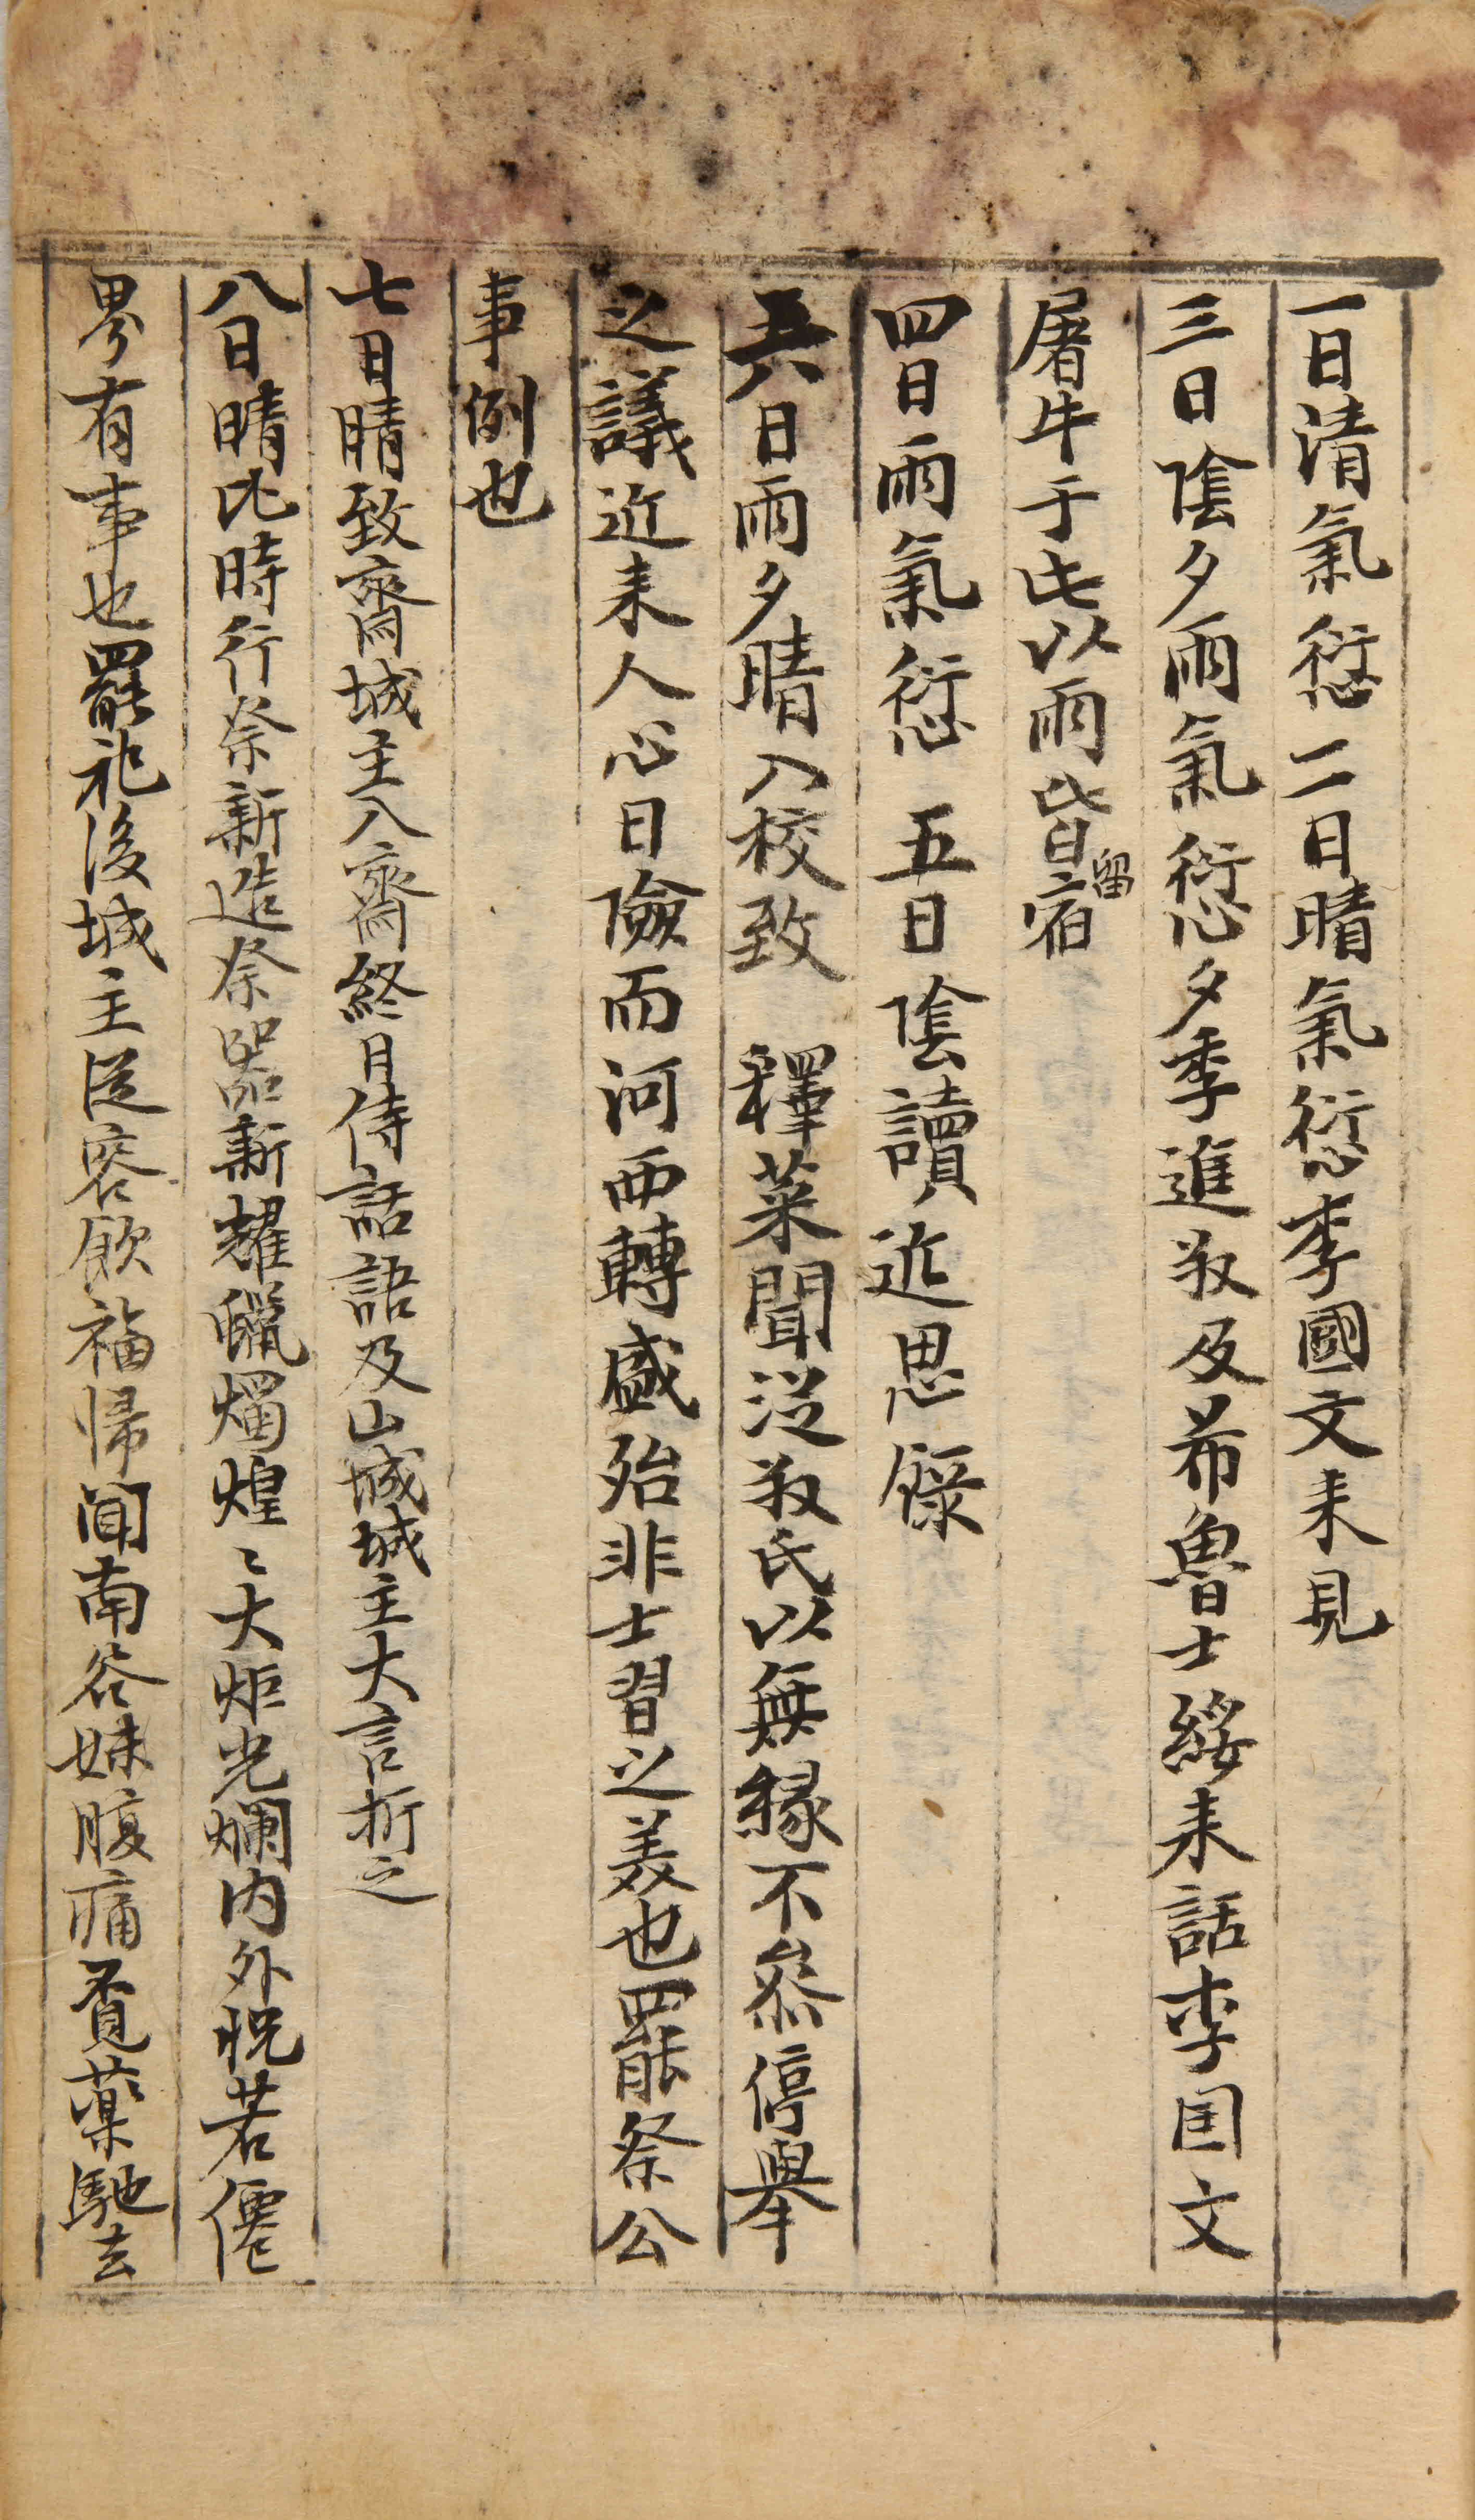 一日清氣愆 二日晴氣愆李國文来見
三日陰夕雨氣愆夕季進叔及希魯士綏来話李国文
屠牛于此以雨皆留宿
四日雨氣愆 五日陰讀近思錄
六日雨夕晴入校致 釋菜聞從叔氏以無緣不參停舉
之議近来人心日險而河西轉盛殆非士習之美也罷祭公
事例也
七日晴致齊城主入齊終日侍話語及山城城主大言折之
八日晴比時行祭新造祭器新耀蠟燭煌〻大炬光爛内外怳若僊
界有事也罷祀後城主從容飲福帰聞南谷妹腹痛賫藥馳去